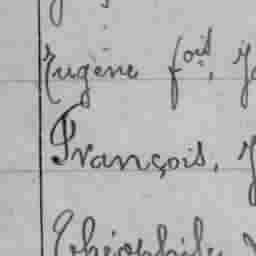 Eugène fois, J
François, J
Théophile